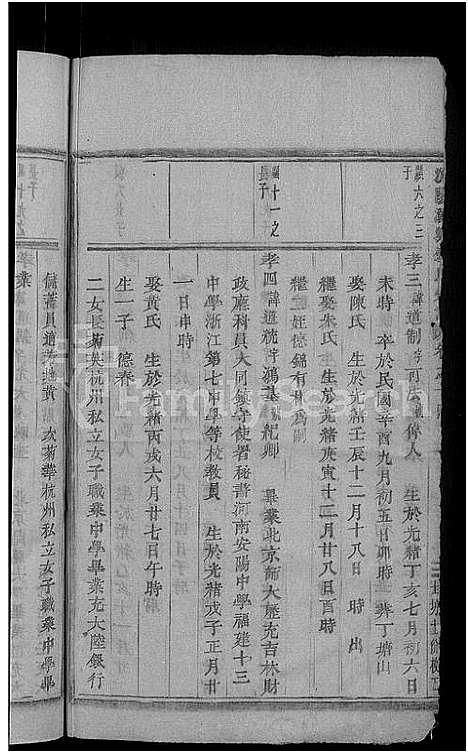 六之三
子
孝三諱道制字可法號偉人 生於光緒丁亥七月初六日
未時 卒於民國辛酉九月初五日卯時 葬丁塘山
娶陳氏 生於光緒壬辰十二月十八日 時 出
繼娶朱氏 生於光緒庚寅十二月廿八日酉時
繼一姪德錦有林為嗣
十一之
長子
孝四諱道統字鴻基號紀卿 畢業北京師大歷充吉林財
政廳科員大同鎮守使署秘書河南安陽中學福建十三
中學浙江第七中學等校教員 生於光緒戊子正月廿
一日申時
娶黃氏 生於光緒丙戌六月廿七日午時
生一子 德春
二女長菊英杭州私立女子職業中學畢業充大陸銀行
儲蓄員適 黃 次菊華杭州私立女子職業中學畢
業
FamilySearch